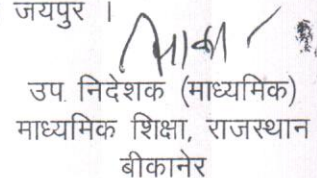 जयपुर ।
उप निदेशक (माध्यमिक)
माध्यमिक शिक्षा, राजस्थान
बीकानेर